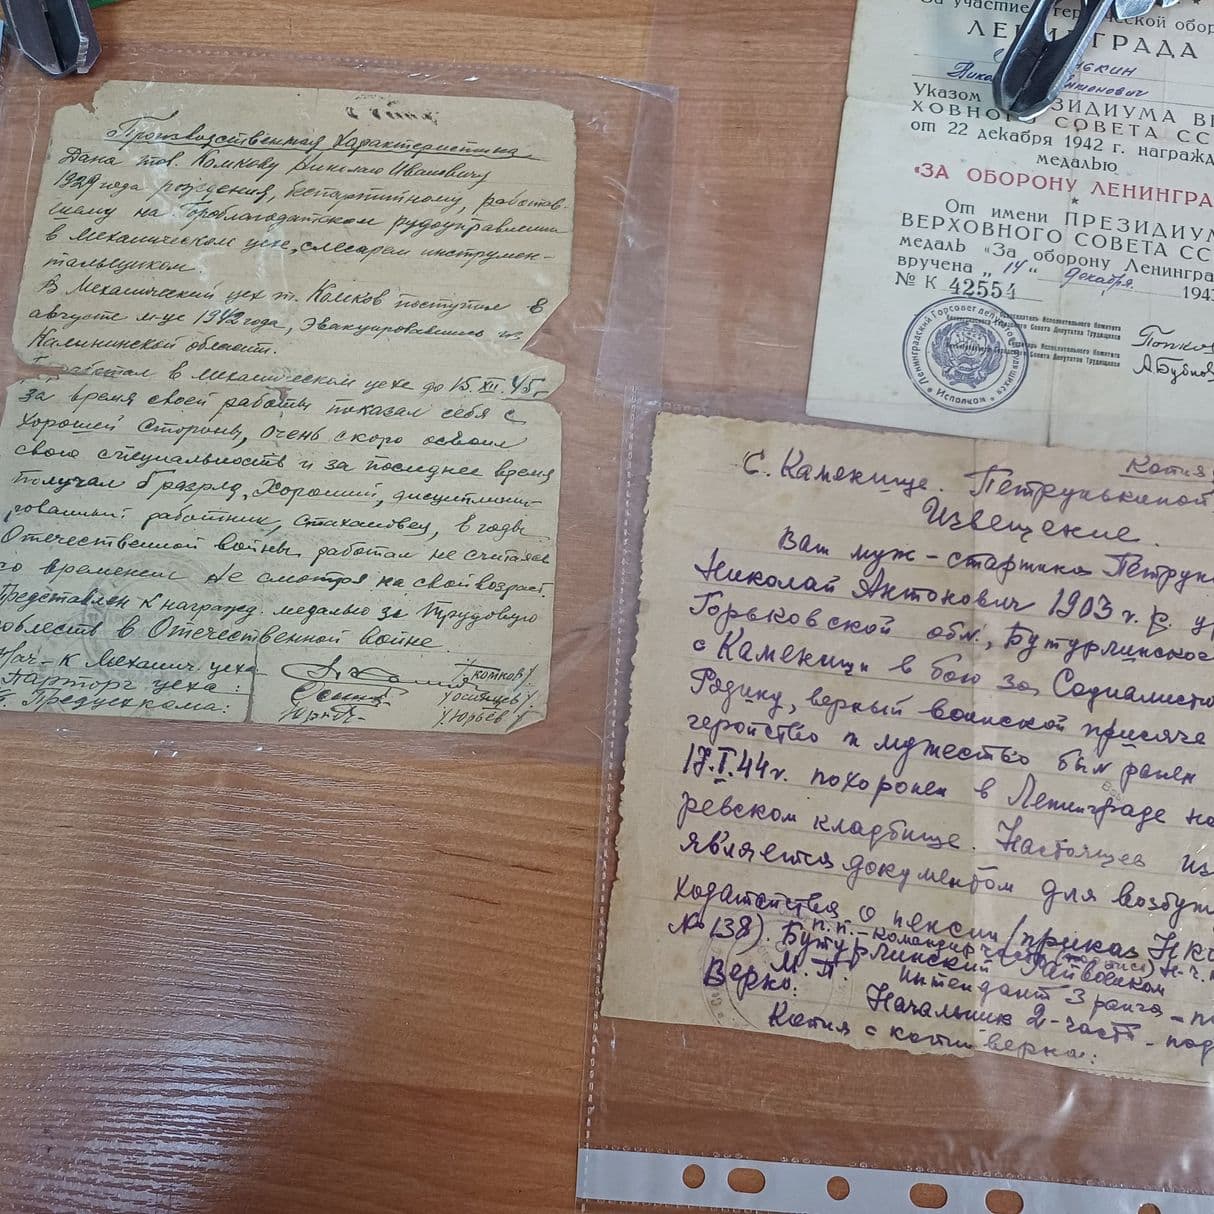 Производственная характеристика
Дана тов. Комкову Николаю Ивановичу
1929 года рождения, беспартийному, работав-
шему на Гороблагодатском рудоуправлении
в механическом цехе, слесарем инструмен-
тальщиком.
В механический цех т. Комков поступил в
августе м-це 1942 года, эвакуировавшись из
Калининской области.
Работал в механическом цехе до 15.XII.45,
за время своей работы показал себя с
хорошей стороны, очень скоро освоил
свою специальность и за последнее время
получал 6 разряд, хороший, дисциплини-
рованный работник, стахановец, в годы
Отечественной войны работал не считаясь
со временем не смотря на свой возраст.
Представлен к награжд. медалью за трудовую
доблесть в Отечественной войне.
Нач-к Механич. цеха
Парторг цеха:
Предцехкома:
/Юрьев/
За участие в героической обор
ЛЕНИНГРАДА
Указом ПРЕЗИДИУМА ВЕ
ХОВНОГО СОВЕТА СС
от 22 декабря 1942 г. награжд
медалью
«ЗА ОБОРОНУ ЛЕНИНГРА
От имени ПРЕЗИДИУМ
ВЕРХОВНОГО СОВЕТА СС
медаль «За оборону Ленингра
вручена „14" декабря 194
№ К 42554
Ленинградский Горсовет депутатов трудящихся
Исполком
Исполнительного Комитета
Ленинградского Городского Совета Депутатов Трудящихся
Секретарь Исполнительного Комитета
Ленинградского Городского Совета Депутатов Трудящихся
Копия
С. Каменище. Петрунькиной
Извещение.
Ваш муж - старшина Петрунь
Николай Антонович 1903 г. р. ур
Горьковской обл., Бутурлинско
с Каменищи в бою за Социалисти
Родину, верный воинской присяге
геройство и мужество был ранен
17.I.44 г. похоронен в Ленинграде на
ревском кладбище. Настоящее из
является документом для возбуж
ходатайства о пенсии /приказ НКО
№ 138). п.п. - командир части (подпись) Н.ч.
Бутурлинский Райвоенком
М.П. интендант 3 ранга - по
Верно: Начальник 2-части - под
Копия с копии верна: